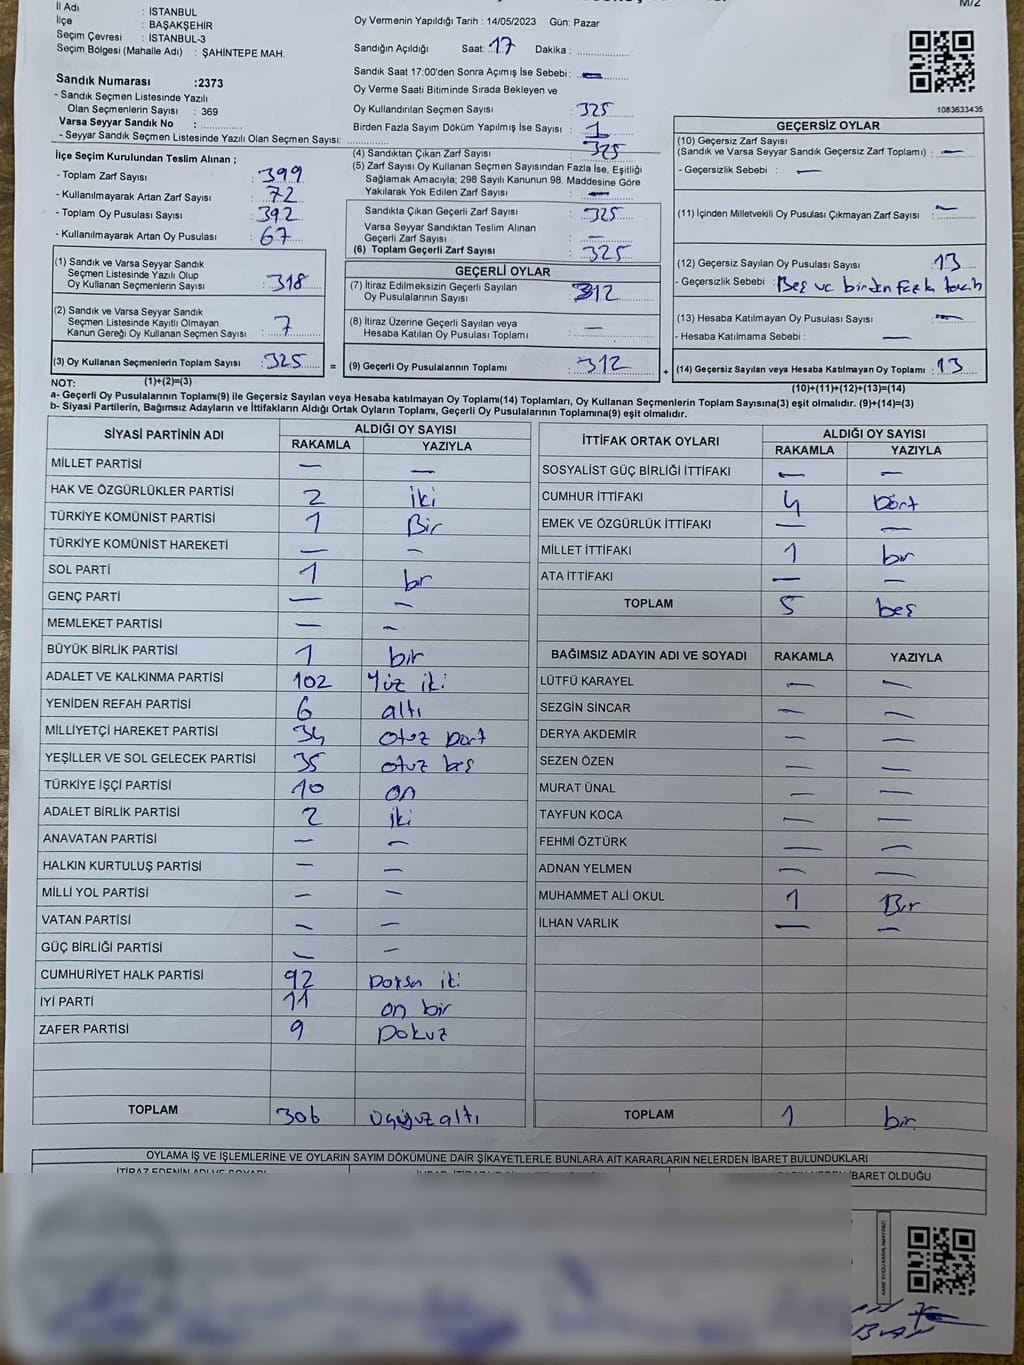 M/2
İl Adı : İSTANBUL
İlçe : BAŞAKŞEHİR
Seçim Çevresi : İSTANBUL-3
Seçim Bölgesi (Mahalle Adı) : ŞAHİNTEPE MAH.
Sandık Numarası :2373
- Sandık Seçmen Listesinde Yazılı
Olan Seçmenlerin Sayısı : 369
Varsa Seyyar Sandık No :
- Seyyar Sandık Seçmen Listesinde Yazılı Olan Seçmen Sayısı:
İlçe Seçim Kurulundan Teslim Alınan ;
- Toplam Zarf Sayısı : 399
- Kullanılmayarak Artan Zarf Sayısı : 72
- Toplam Oy Pusulası Sayısı : 392
- Kullanılmayarak Artan Oy Pusulası : 67
(1) Sandık ve Varsa Seyyar Sandık
Seçmen Listesinde Yazılı Olup
Oy Kullanan Seçmenlerin Sayısı : 318
(2) Sandık ve Varsa Seyyar Sandık
Seçmen Listesinde Kayıtlı Olmayan
Kanun Gereği Oy Kullanan Seçmen Sayısı : 7
(3) Oy Kullanan Seçmenlerin Toplam Sayısı : 325
Oy Vermenin Yapıldığı Tarih : 14/05/2023 Gün: Pazar
Sandığın Açıldığı Saat: 17 Dakika :
Sandık Saat 17:00'den Sonra Açımış İse Sebebi : —
Oy Verme Saati Bitiminde Sırada Bekleyen ve
Oy Kullandırılan Seçmen Sayısı : 325
Birden Fazla Sayım Döküm Yapılmış İse Sayısı : 1
(4) Sandıktan Çıkan Zarf Sayısı : 325
(5) Zarf Sayısı Oy Kullanan Seçmen Sayısından Fazla İse, Eşitliği
Sağlamak Amacıyla; 298 Sayılı Kanunun 98. Maddesine Göre
Yakılarak Yok Edilen Zarf Sayısı : —
Sandıkta Çıkan Geçerli Zarf Sayısı : 325
Varsa Seyyar Sandıktan Teslim Alınan
Geçerli Zarf Sayısı : —
(6) Toplam Geçerli Zarf Sayısı : 325
GEÇERLİ OYLAR
(7) İtiraz Edilmeksizin Geçerli Sayılan
Oy Pusulalarının Sayısı : 312
(8) İtiraz Üzerine Geçerli Sayılan veya
Hesaba Katılan Oy Pusulası Toplamı : —
= (9) Geçerli Oy Pusulalarının Toplamı : 312 +
1083633435
GEÇERSİZ OYLAR
(10) Geçersiz Zarf Sayısı
(Sandık ve Varsa Seyyar Sandık Geçersiz Zarf Toplamı) : —
- Geçersizlik Sebebi : —
(11) İçinden Milletvekili Oy Pusulası Çıkmayan Zarf Sayısı : —
(12) Geçersiz Sayılan Oy Pusulası Sayısı : 13
- Geçersizlik Sebebi : Boş ve birden Fazla tercih
(13) Hesaba Katılmayan Oy Pusulası Sayısı : —
- Hesaba Katılmama Sebebi : —
(14) Geçersiz Sayılan veya Hesaba Katılmayan Oy Toplamı : 13
NOT: (1)+(2)=(3) (10)+(11)+(12)+(13)=(14)
a- Geçerli Oy Pusulalarının Toplamı(9) ile Geçersiz Sayılan veya Hesaba katılmayan Oy Toplamı(14) Toplamları, Oy Kullanan Seçmenlerin Toplam Sayısına(3) eşit olmalıdır. (9)+(14)=(3)
b- Siyasi Partilerin, Bağımsız Adayların ve İttifakların Aldığı Ortak Oyların Toplamı, Geçerli Oy Pusulalarının Toplamına(9) eşit olmalıdır.
SİYASİ PARTİNİN ADI ALDIĞI OY SAYISI
RAKAMLA YAZIYLA
MİLLET PARTİSİ — —
HAK VE ÖZGÜRLÜKLER PARTİSİ 2 iki
TÜRKİYE KOMÜNİST PARTİSİ 1 Bir
TÜRKİYE KOMÜNİST HAREKETİ — —
SOL PARTİ 1 bir
GENÇ PARTİ — —
MEMLEKET PARTİSİ — —
BÜYÜK BİRLİK PARTİSİ 1 bir
ADALET VE KALKINMA PARTİSİ 102 Yüz iki
YENİDEN REFAH PARTİSİ 6 altı
MİLLİYETÇİ HAREKET PARTİSİ 34 otuz Dört
YEŞİLLER VE SOL GELECEK PARTİSİ 35 otuz beş
TÜRKİYE İŞÇİ PARTİSİ 10 on
ADALET BİRLİK PARTİSİ 2 iki
ANAVATAN PARTİSİ — —
HALKIN KURTULUŞ PARTİSİ — —
MİLLİ YOL PARTİSİ — —
VATAN PARTİSİ — —
GÜÇ BİRLİĞİ PARTİSİ — —
CUMHURİYET HALK PARTİSİ 92 Doksan iki
İYİ PARTİ 11 on bir
ZAFER PARTİSİ 9 Dokuz
TOPLAM 306 üçyüz altı
İTTİFAK ORTAK OYLARI ALDIĞI OY SAYISI
RAKAMLA YAZIYLA
SOSYALİST GÜÇ BİRLİĞİ İTTİFAKI — —
CUMHUR İTTİFAKI 4 Dört
EMEK VE ÖZGÜRLÜK İTTİFAKI — —
MİLLET İTTİFAKI 1 bir
ATA İTTİFAKI — —
TOPLAM 5 beş
BAĞIMSIZ ADAYIN ADI VE SOYADI RAKAMLA YAZIYLA
LÜTFÜ KARAYEL — —
SEZGİN SİNCAR — —
DERYA AKDEMİR — —
SEZEN ÖZEN — —
MURAT ÜNAL — —
TAYFUN KOCA — —
FEHMİ ÖZTÜRK — —
ADNAN YELMEN — —
MUHAMMET ALİ OKUL 1 Bir
İLHAN VARLIK — —
TOPLAM 1 bir
OYLAMA İŞ VE İŞLEMLERİNE VE OYLARIN SAYIM DÖKÜMÜNE DAİR ŞİKAYETLERLE BUNLARA AİT KARARLARIN NELERDEN İBARET BULUNDUKLARI
İTİRAZ EDENİN ADI VE SOYADI
İBARET OLDUĞU